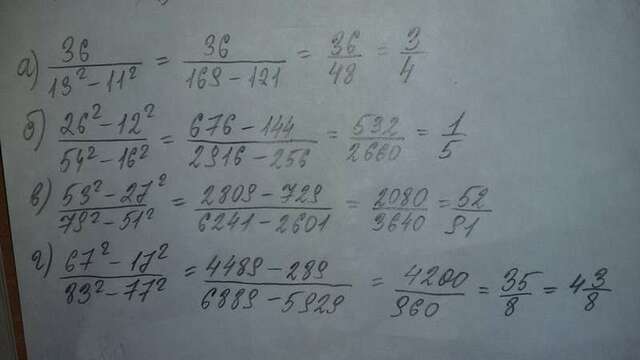 а) 36/(13² − 11²) = 36/(169 − 121) = 36/48 = 3/4
б) (26² − 12²)/(54² − 16²) = (676 − 144)/(2916 − 256) = 532/2660 = 1/5
в) (53² − 27²)/(79² − 51²) = (2809 − 729)/(6241 − 2601) = 2080/3640 = 52/91
г) (67² − 17²)/(83² − 77²) = (4489 − 289)/(6889 − 5929) = 4200/960 = 35/8 = 4 3/8